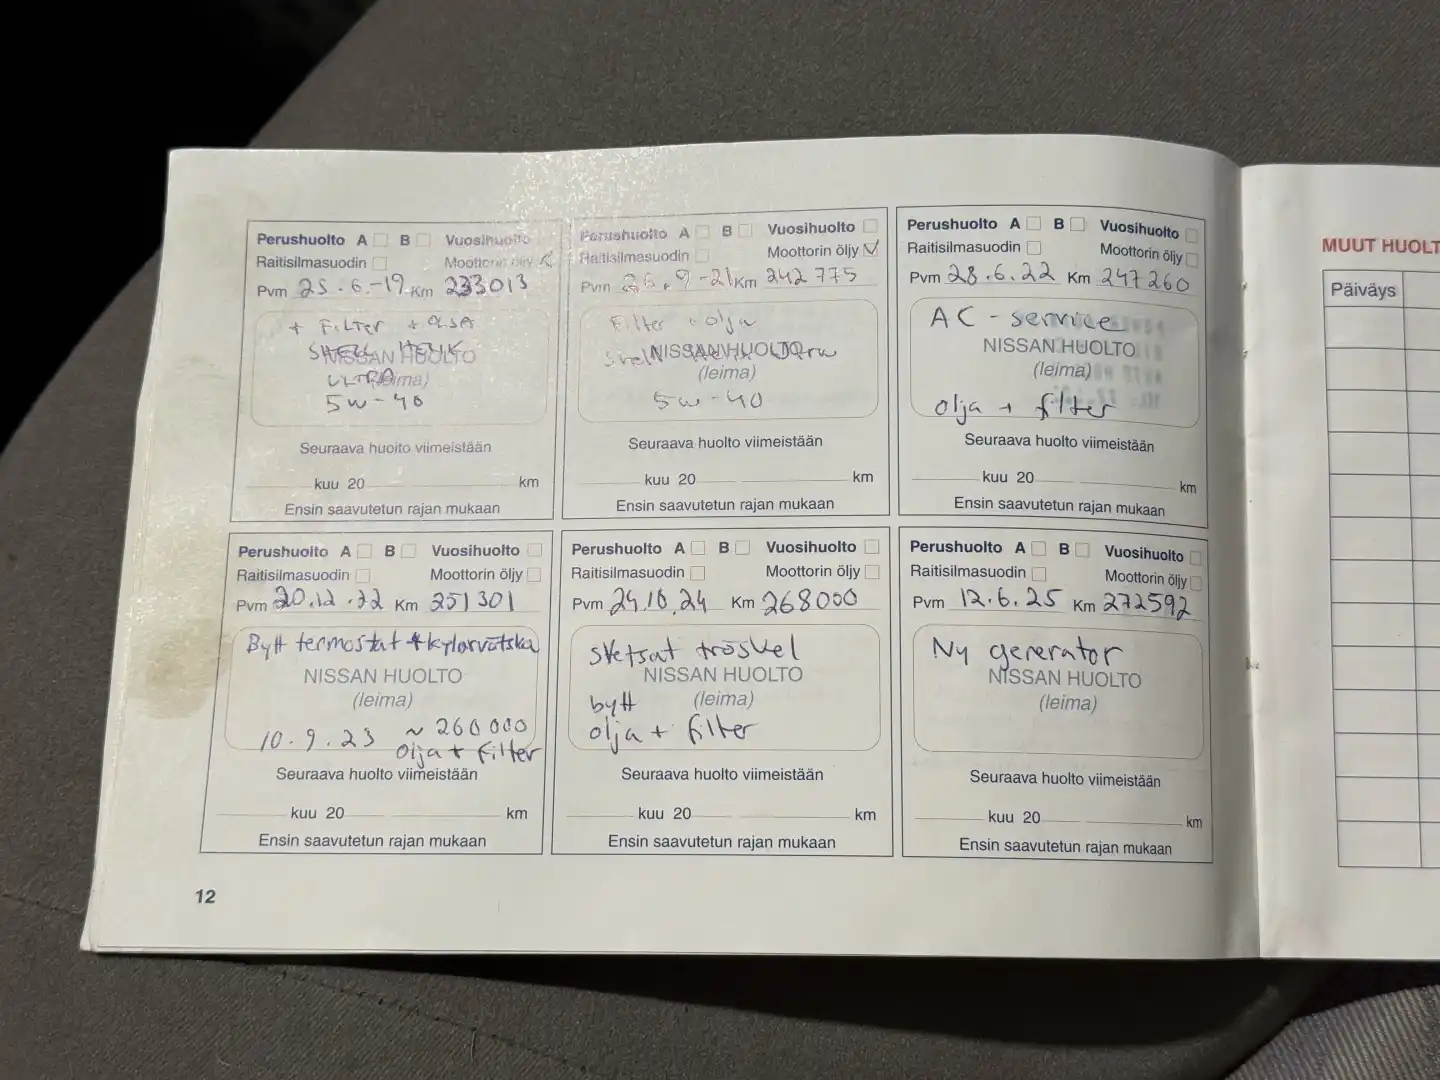 Perushuolto A B Vuosihuolto
Raitisilmasuodin Moottorin öljy
Pvm 25.6.-19 Km 233013
+ FILTER + OLJA
SHELL HELIX
NISSAN HUOLTO
ULTRA
(leima)
5W-40
Seuraava huolto viimeistään
kuu 20 km
Ensin saavutetun rajan mukaan
Perushuolto A B Vuosihuolto
Raitisilmasuodin Moottorin öljy
Pvm 26.9-21 Km 242 775
Filter + olja
Shell Helix Ultra
NISSAN HUOLTO
(leima)
5w-40
Seuraava huolto viimeistään
kuu 20 km
Ensin saavutetun rajan mukaan
Perushuolto A B Vuosihuolto
Raitisilmasuodin Moottorin öljy
Pvm 28.6.22 Km 247260
AC-service
NISSAN HUOLTO
(leima)
olja + filter
Seuraava huolto viimeistään
kuu 20 km
Ensin saavutetun rajan mukaan
Perushuolto A B Vuosihuolto
Raitisilmasuodin Moottorin öljy
Pvm 20.12.22 Km 251301
Bytt termostat + kylarvätska
NISSAN HUOLTO
(leima)
10.9.23 ~260000
olja + filter
Seuraava huolto viimeistään
kuu 20 km
Ensin saavutetun rajan mukaan
Perushuolto A B Vuosihuolto
Raitisilmasuodin Moottorin öljy
Pvm 24.10.24 Km 268000
svetsat tröskel
NISSAN HUOLTO
bytt (leima)
olja + filter
Seuraava huolto viimeistään
kuu 20 km
Ensin saavutetun rajan mukaan
Perushuolto A B Vuosihuolto
Raitisilmasuodin Moottorin öljy
Pvm 12.6.25 Km 272592
Ny generator
NISSAN HUOLTO
(leima)
Seuraava huolto viimeistään
kuu 20 km
Ensin saavutetun rajan mukaan
12
MUUT HUOLT
Päiväys